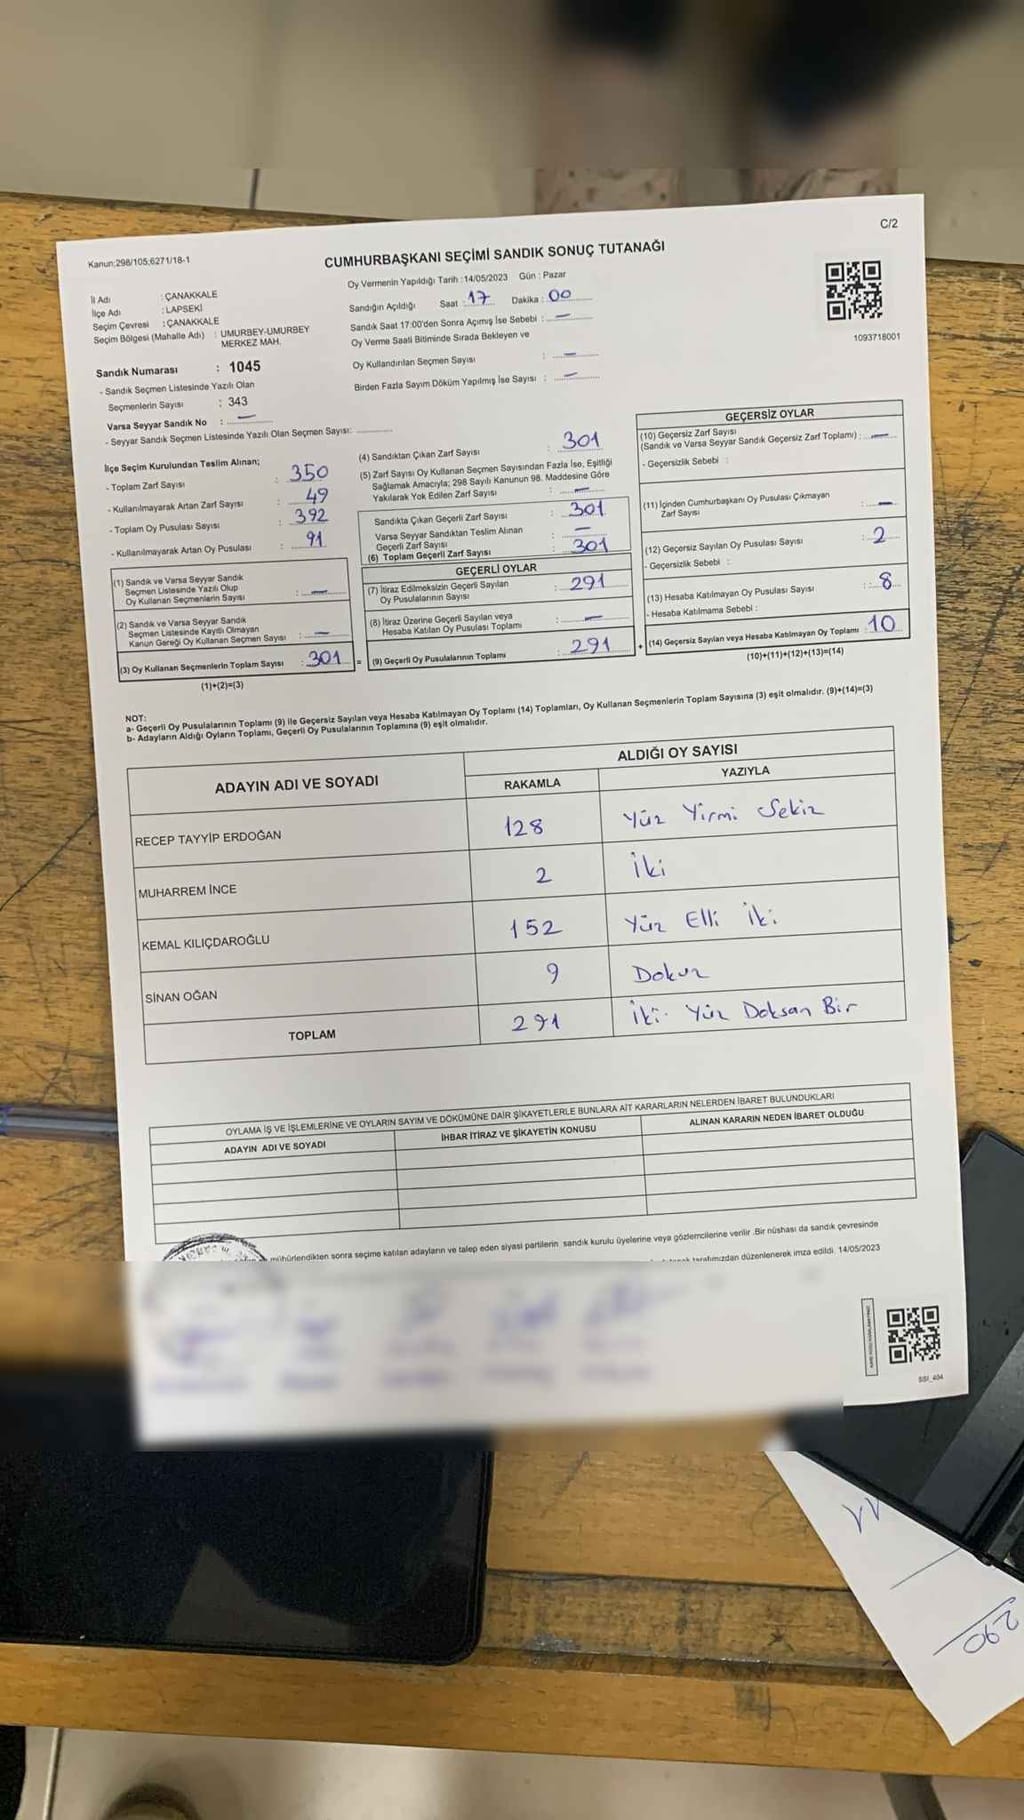 C/2
Kanun:298/105,6271/18-1
CUMHURBAŞKANI SEÇİMİ SANDIK SONUÇ TUTANAĞI
Oy Vermenin Yapıldığı Tarih :14/05/2023 Gün : Pazar
İl Adı : ÇANAKKALE
İlçe Adı : LAPSEKİ
Seçim Çevresi : ÇANAKKALE
Seçim Bölgesi (Mahalle Adı) : UMURBEY-UMURBEY
MERKEZ MAH.
Sandığın Açıldığı Saat : 17 Dakika : 00
Sandık Saat 17:00'den Sonra Açımış İse Sebebi : —
Oy Verme Saati Bitiminde Sırada Bekleyen ve
Oy Kullandırılan Seçmen Sayısı : —
Birden Fazla Sayım Döküm Yapılmış İse Sayısı : —
1093718001
Sandık Numarası : 1045
- Sandık Seçmen Listesinde Yazılı Olan
Seçmenlerin Sayısı : 343
Varsa Seyyar Sandık No : —
- Seyyar Sandık Seçmen Listesinde Yazılı Olan Seçmen Sayısı:
İlçe Seçim Kurulundan Teslim Alınan;
- Toplam Zarf Sayısı : 350
- Kullanılmayarak Artan Zarf Sayısı : 49
- Toplam Oy Pusulası Sayısı : 392
- Kullanılmayarak Artan Oy Pusulası : 91
(1) Sandık ve Varsa Seyyar Sandık
Seçmen Listesinde Yazılı Olup
Oy Kullanan Seçmenlerin Sayısı : —
(2) Sandık ve Varsa Seyyar Sandık
Seçmen Listesinde Kayıtlı Olmayan
Kanun Gereği Oy Kullanan Seçmen Sayısı : —
(3) Oy Kullanan Seçmenlerin Toplam Sayısı : 301 =
(1)+(2)=(3)
(4) Sandıktan Çıkan Zarf Sayısı : 301
(5) Zarf Sayısı Oy Kullanan Seçmen Sayısından Fazla İse, Eşitliği
Sağlamak Amacıyla; 298 Sayılı Kanunun 98. Maddesine Göre
Yakılarak Yok Edilen Zarf Sayısı : —
Sandıkta Çıkan Geçerli Zarf Sayısı : 301
Varsa Seyyar Sandıktan Teslim Alınan
Geçerli Zarf Sayısı : —
(6) Toplam Geçerli Zarf Sayısı : 301
GEÇERLİ OYLAR
(7) İtiraz Edilmeksizin Geçerli Sayılan
Oy Pusulalarının Sayısı : 291
(8) İtiraz Üzerine Geçerli Sayılan veya
Hesaba Katılan Oy Pusulası Toplamı : —
(9) Geçerli Oy Pusulalarının Toplamı : 291 +
GEÇERSİZ OYLAR
(10) Geçersiz Zarf Sayısı
(Sandık ve Varsa Seyyar Sandık Geçersiz Zarf Toplamı) : —
- Geçersizlik Sebebi :
(11) İçinden Cumhurbaşkanı Oy Pusulası Çıkmayan
Zarf Sayısı : —
(12) Geçersiz Sayılan Oy Pusulası Sayısı : 2
- Geçersizlik Sebebi :
(13) Hesaba Katılmayan Oy Pusulası Sayısı : 8
- Hesaba Katılmama Sebebi :
(14) Geçersiz Sayılan veya Hesaba Katılmayan Oy Toplamı : 10
(10)+(11)+(12)+(13)=(14)
NOT:
a- Geçerli Oy Pusulalarının Toplamı (9) ile Geçersiz Sayılan veya Hesaba Katılmayan Oy Toplamı (14) Toplamları, Oy Kullanan Seçmenlerin Toplam Sayısına (3) eşit olmalıdır. (9)+(14)=(3)
b- Adayların Aldığı Oyların Toplamı, Geçerli Oy Pusulalarının Toplamına (9) eşit olmalıdır.
ADAYIN ADI VE SOYADI ALDIĞI OY SAYISI
RAKAMLA YAZIYLA
RECEP TAYYİP ERDOĞAN 128 Yüz Yirmi Sekiz
MUHARREM İNCE 2 İki
KEMAL KILIÇDAROĞLU 152 Yüz Elli İki
SİNAN OĞAN 9 Dokuz
TOPLAM 291 İki Yüz Doksan Bir
OYLAMA İŞ VE İŞLEMLERİNE VE OYLARIN SAYIM VE DÖKÜMÜNE DAİR ŞİKAYETLERLE BUNLARA AİT KARARLARIN NELERDEN İBARET BULUNDUKLARI
ADAYIN ADI VE SOYADI İHBAR İTİRAZ VE ŞİKAYETİN KONUSU ALINAN KARARIN NEDEN İBARET OLDUĞU
mühürlendikten sonra seçime katılan adayların ve talep eden siyasi partilerin sandık kurulu üyelerine veya gözlemcilerine verilir .Bir nüshası da sandık çevresinde
tarafımızdan düzenlenerek imza edildi. 14/05/2023
SSI_404
290